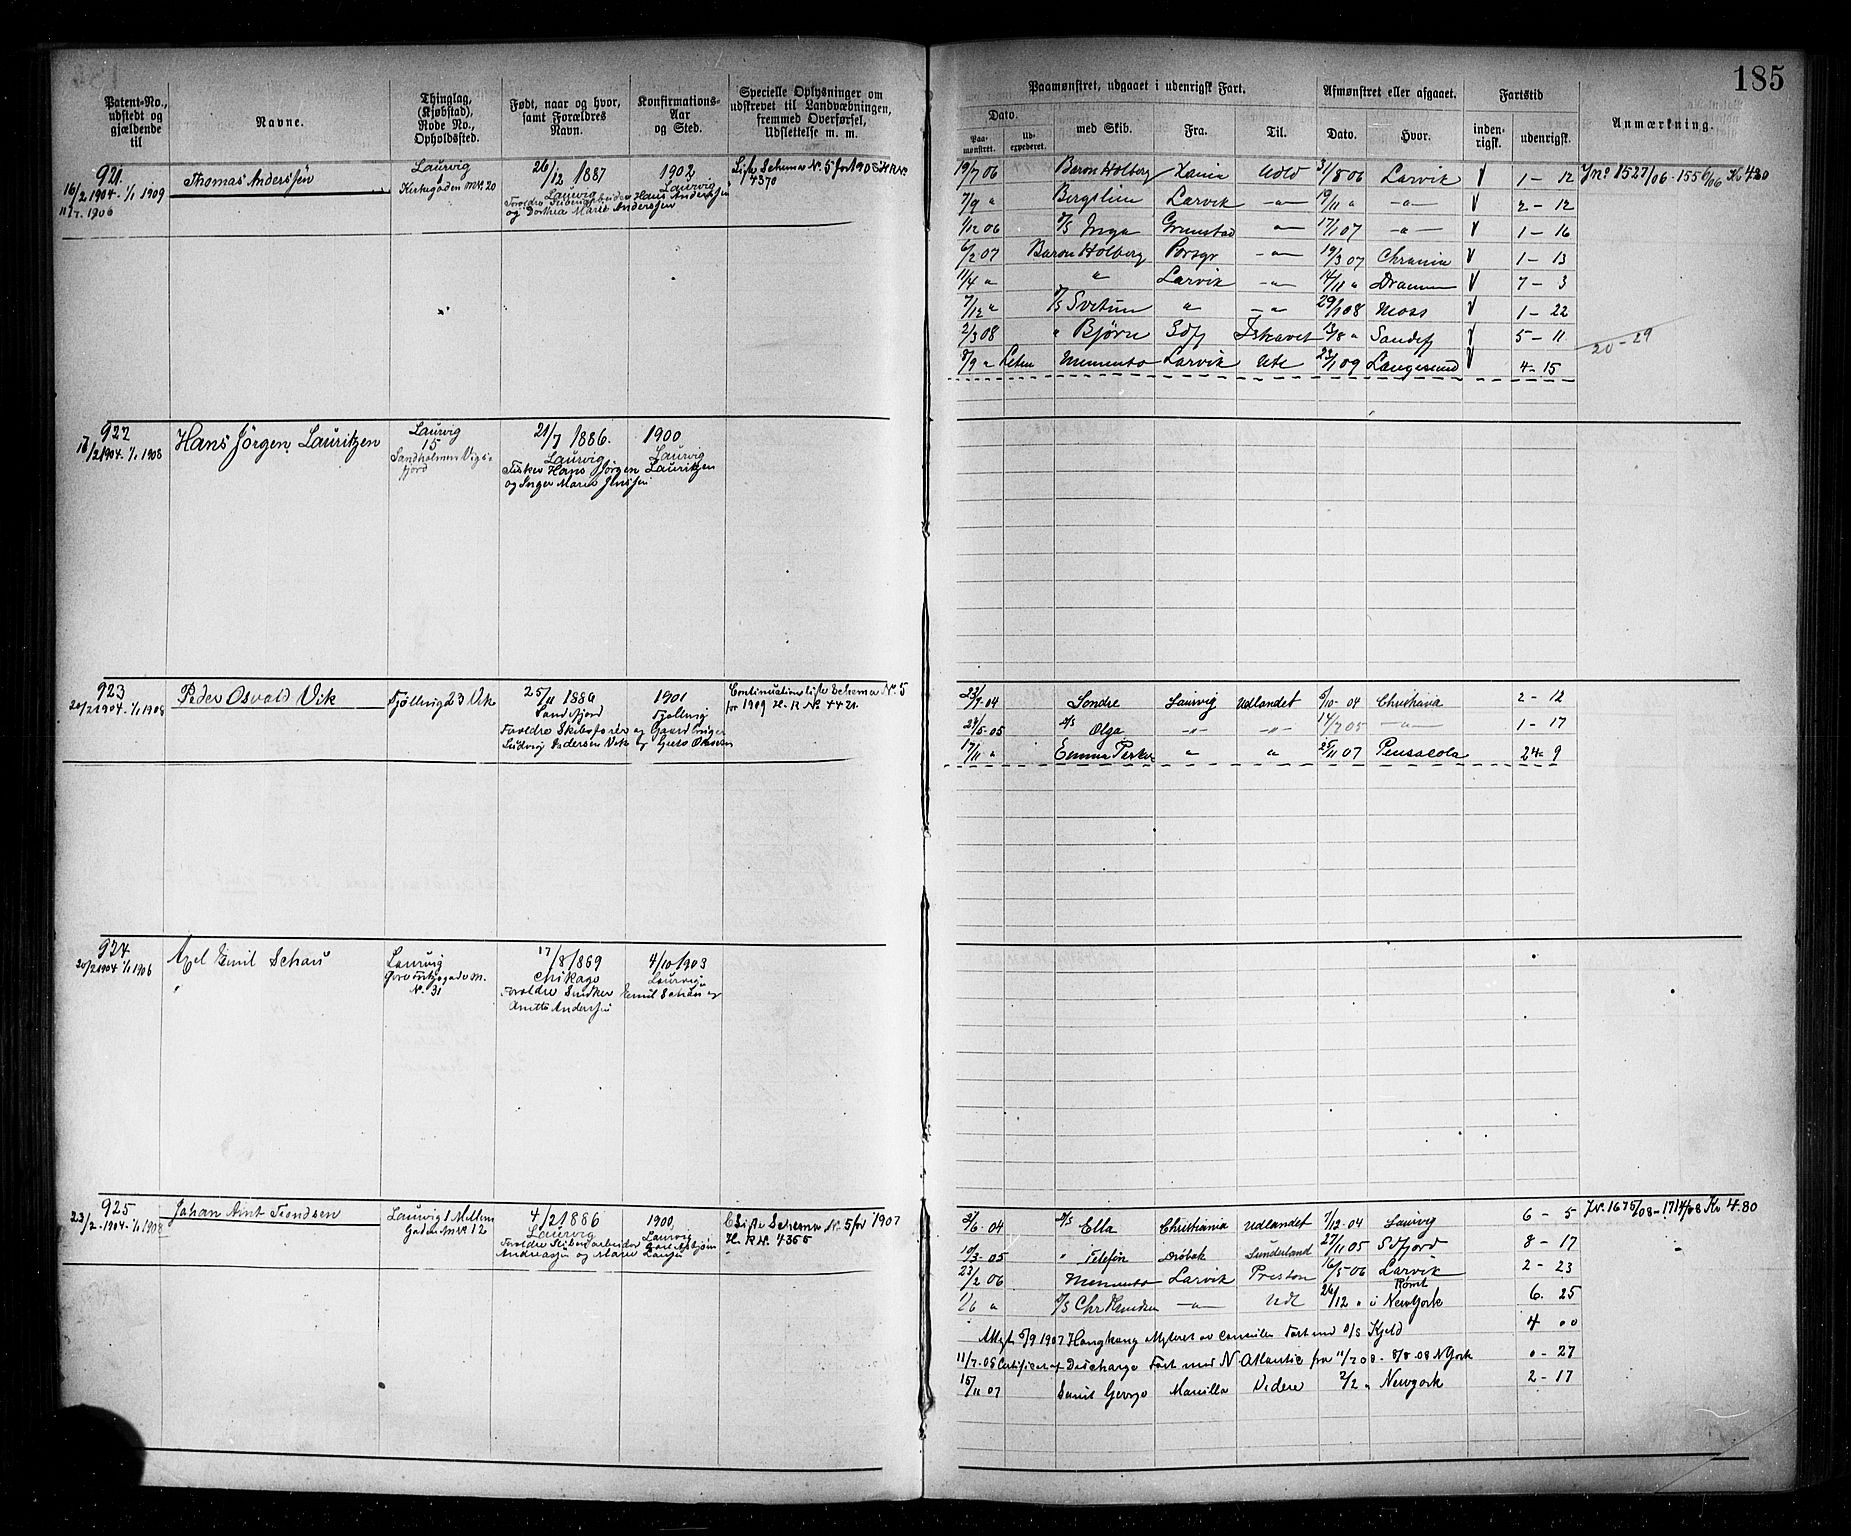 185
Patent-No., udstedt og gjældende til
Navne.
Thinglag, (Kjøbstad), Rode No., Opholdssted.
Født, naar og hvor, samt Forældres Navn.
Konfirmations-Aar og Sted.
Specielle Oplysninger om udskrevet til Landvæbningen, fremmed Overførsel, Udslettelse m. m.
Paamønstret, udgaaet i udenrigsk Fart.
Dato.
Paa-mønstret.
Ud-expederet.
med Skib.
Fra.
Til.
Afmønstret eller afgaaet.
Dato.
Hvor.
Fartstid
inden-rigsk.
udenrigsk.
Anmærkning.
921
16/2 1904. 1/1 1909
Thomas Anderssen
Laurvig
1
Kirkegaden 20
26/12 1887
Laurvig
Hans Anderssen
og Dorthea Marie Anderssen
1902
Laurvig
Liste Schema No 5 for 1908
4370
19/7 06 Baron Holberg Xania Udld 31/8 06 Larvik V 1 - 12 Jno 1527/06 - 1556/06 Kr 4.20
7/9 " Bergslien Larvik -"- 19/11 " -"- V 2 - 12
1/12 06 D/S Inga Grimstad -"- 17/1 07 -"- V 1 - 16
6/2 07 Baron Holberg Porsgr -"- 19/3 07 Chrania V 1 - 13
11/4 " " Larvik -"- 14/11 " Drammn V 7 - 3
7/12 " D/S Svitun " -"- 29/1 08 Moss V 1 - 22
2/3 08 " Bjørn Sdfj Ishavet 13/8 " Sandefj V 5 - 11
20 - 29
8/9 " Memento Larvik Ute 23/1 09 Langesund V 4 - 15
922
16/2 1904. 1/1 1908
Hans Jörgen Lauritzen
Laurvig
15
Sandholmen Vigs-
fjord
21/7 1886.
Laurvig
Fisker Hans Jörgen Lauritzen
og Inger Marie Jenssen
1900
Laurvig
923
20/2 1904. 1/1 1908
Peder Osvald Vik
Tjöllving 23 Vik
25/11 1886
Sandefjord
Forældre Skibsfører og Gaardbruger
Ludvig Pedersen Vik og
1901
Tjølling
Continuationsliste Schema No 5
for 1909 H. R No 4421
23/7 - 04 Söndre Laurvig Udlandet 5/10 - 04 Christiania 2 - 12
29/5 - 05 D/S Olga -"- -"- 14/7 05 -"- 1 - 17
17/11 " Emma Parker " " 25/11 07 Pensacola 24 - 9
924
20/2 1904 1/1 1906
Axel Emil Schau
Laurvig
No. 31
17/8 1869
Chikago
Forældre Snedker Emil Schau og
Anette Anderssen
4/10 1903
Laurvig
925
23/2 - 1904. 1/1 1908
Johan Arnt Trondsen
Laurvig 1 Mellem
Gaden 12
4/2 1886
Laurvig
Forældre Stenarbeider
Andreassen og Maren
1900
Laurvig
Liste Schema No. 5 for 1907
H. R No. 4355
3/6 - 04 D/S Ella Christiania Udlandet 7/12 - 04 Laurvig 6 - 5 J.no. 1675/08 - 1714/08 Kr 4.80
10/3 - 05 " Telefon Drøbak Sunderland 27/11 05 Sdfjord 8 - 17
23/2 06 Memento Larvik Preston 16/5 06 Larvik 2 - 23
Rømt
1/6 " D/S Chr Knudsen -"- Udl 26/12 " i NewYork 6. 25
5/9 1907 Hongkong Fart med D/S Kjeld 4 00
11/7 - 08 Certificat of Discharge Fart med N Atlantic fra 11/7 08 - 8/8 - 08 N York 0 - 27
15/11 07 Saint George Manilla Videre 2/2 " Newyork 2 - 17